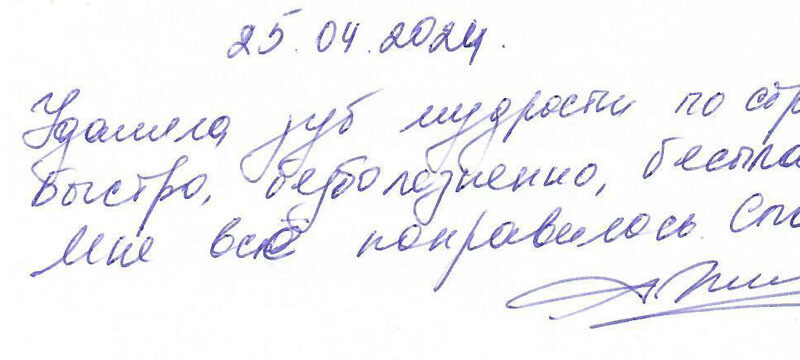 25.04.2024.
Удаляла зуб мудрости по
Быстро, безболезненно,
Мне всё понравилось.